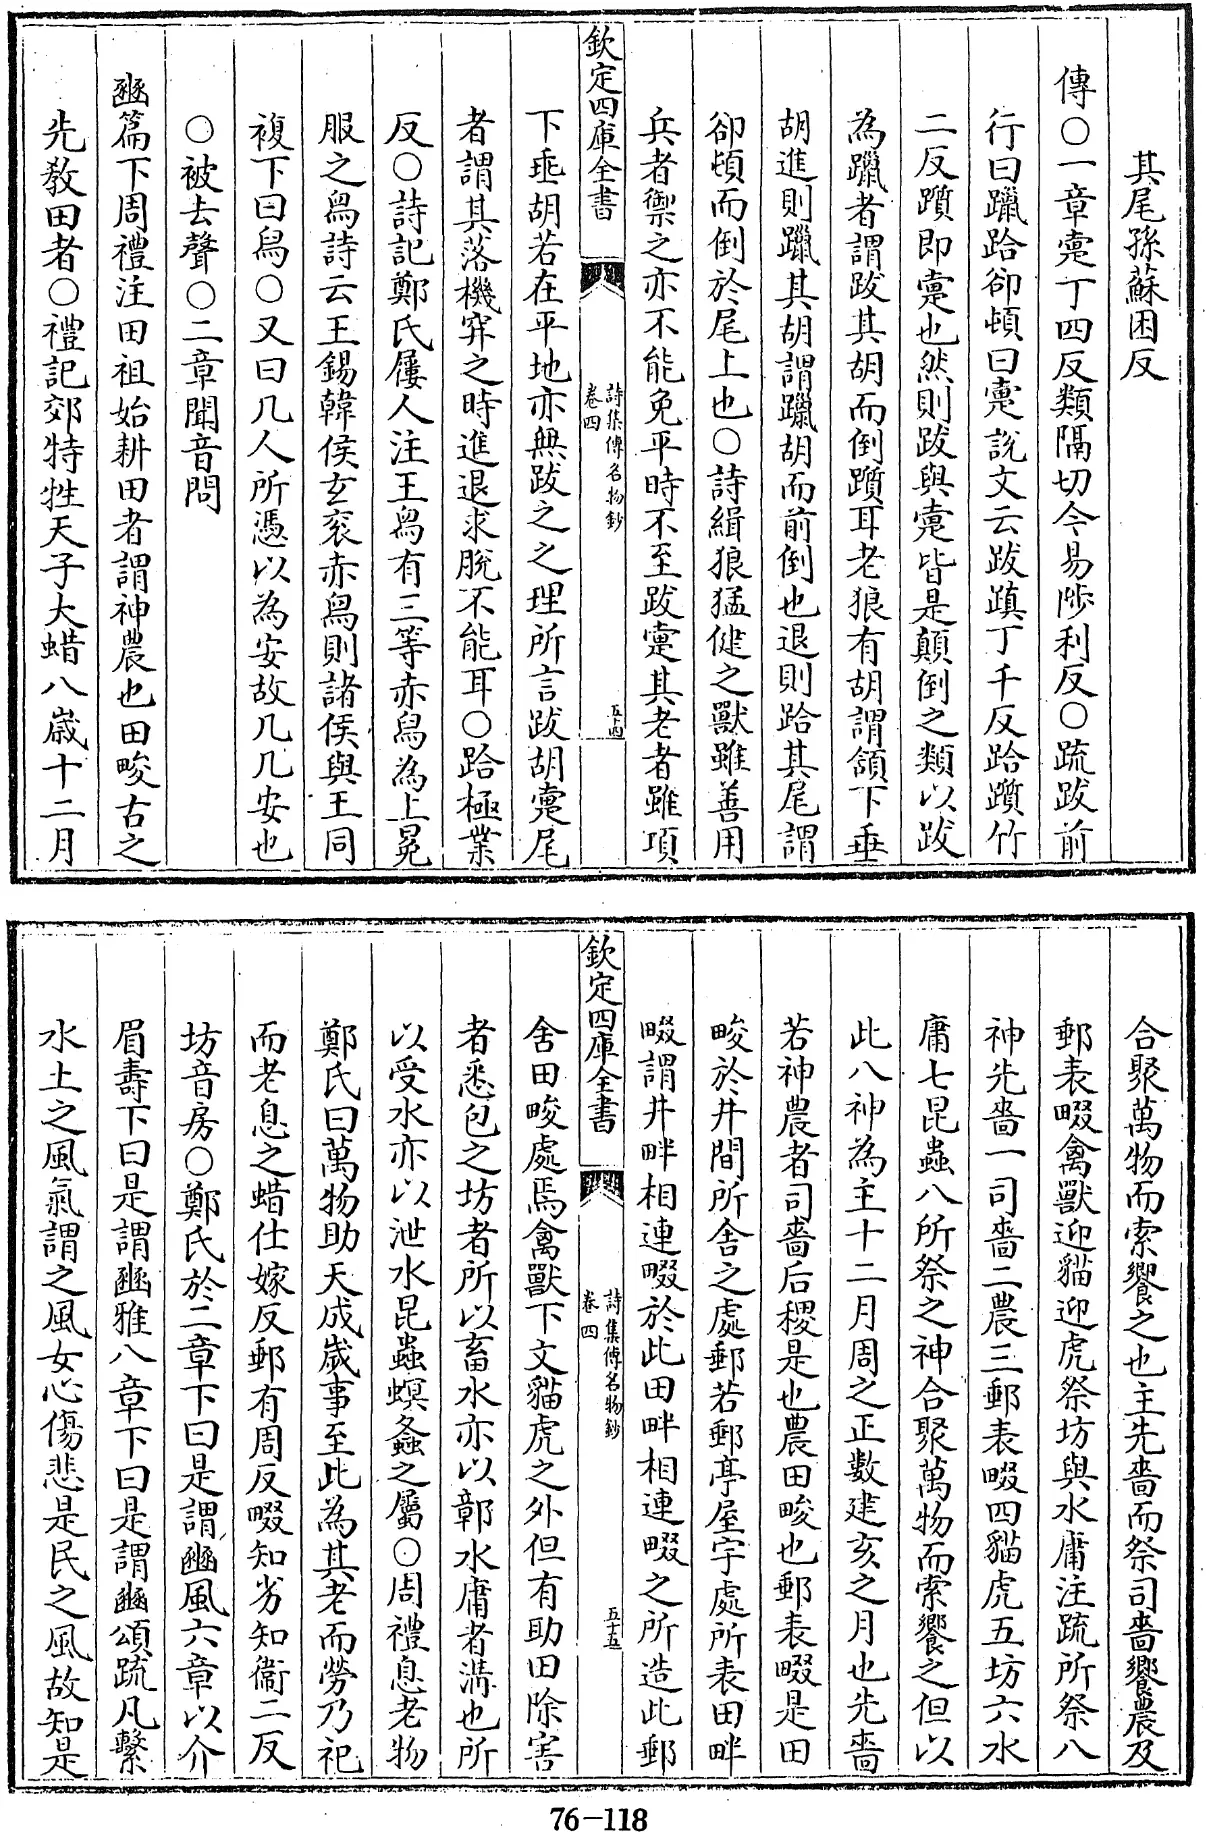 其尾孫蘇困反
傳○一章疐丁四反類隔切今易陟利反○疏跋前
行曰躐跲卻頓曰疐說文云跋蹎丁千反跲躓竹
二反躓即疐也然則跋與疐皆是顛倒之類以跋
為躐者謂跋其胡而倒躓耳老狼有胡謂頷下垂
胡進則躐其胡謂躐胡而前倒也退則跲其尾謂
卻頓而倒於尾上也○詩緝狼猛健之獸雖善用
兵者禦之亦不能免平時不至跋疐其老者雖項
欽定四庫全書
詩集傳名物鈔
卷四
五十四
下垂胡若在平地亦無跋之之理所言跋胡疐尾
者謂其落機穽之時進退求脫不能耳○跲極業
反○詩記鄭氏屨人注王舄有三等赤舄為上冕
服之舄詩云王錫韓侯玄衮赤舄則諸侯與王同
複下曰舄○又曰几人所憑以為安故几几安也
○被去聲○二章聞音問
豳篇下周禮注田祖始耕田者謂神農也田畯古之
先教田者○禮記郊特牲天子大蜡八歲十二月
合聚萬物而索饗之也主先嗇而祭司嗇饗農及
郵表畷禽獸迎貓迎虎祭坊與水庸注疏所祭八
神先嗇一司嗇二農三郵表畷四貓虎五坊六水
庸七昆蟲八所祭之神合聚萬物而索饗之但以
此八神為主十二月周之正數建亥之月也先嗇
若神農者司嗇后稷是也農田畯也郵表畷是田
畯於井間所舍之處郵若郵亭屋宇處所表田畔
畷謂井畔相連畷於此田畔相連畷之所造此郵
欽定四庫全書
詩集傳名物鈔
卷四
五十五
舍田畯處焉禽獸下文貓虎之外但有助田除害
者悉包之坊者所以畜水亦以鄣水庸者溝也所
以受水亦以泄水昆蟲螟螽之屬○周禮息老物
鄭氏曰萬物助天成歲事至此為其老而勞乃祀
而老息之蜡仕嫁反郵有周反畷知劣知衞二反
坊音房○鄭氏於二章下曰是謂豳風六章以介
眉壽下曰是謂豳雅八章下曰是謂豳頌疏凡繫
水土之風氣謂之風女心傷悲是民之風故知是
76-118